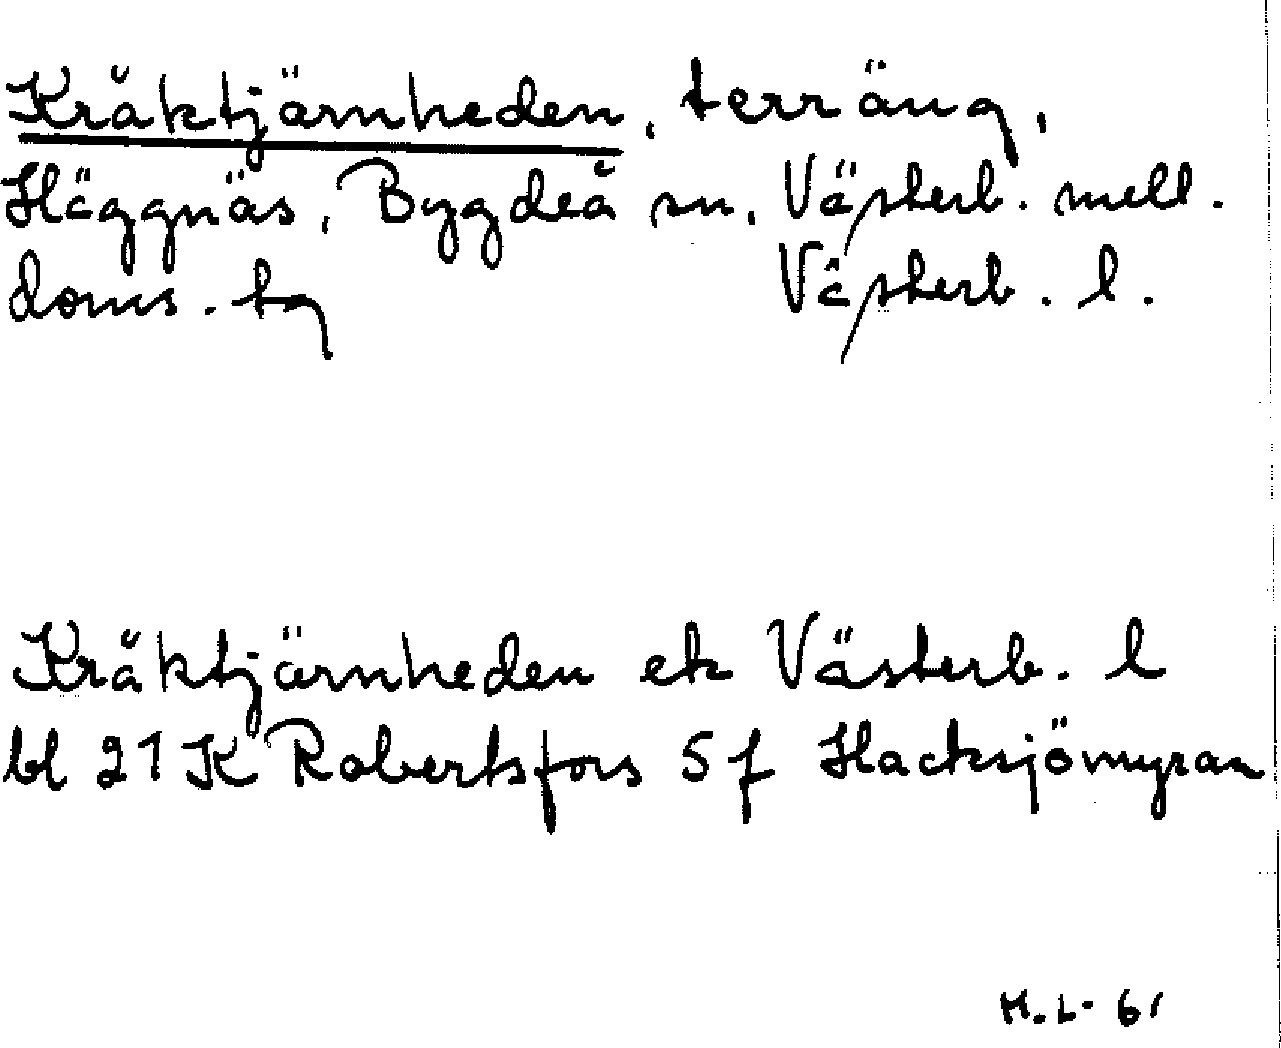 Kråktjärnheden, terräng,
Häggnäs, Bygdeå sn, Västerb. mell.
doms. tg Västerb. l.
Kråktjärnheden ek Västerb. l
bl 21 K Robertsfors 5 f Hacksjömyran
H.L. 61